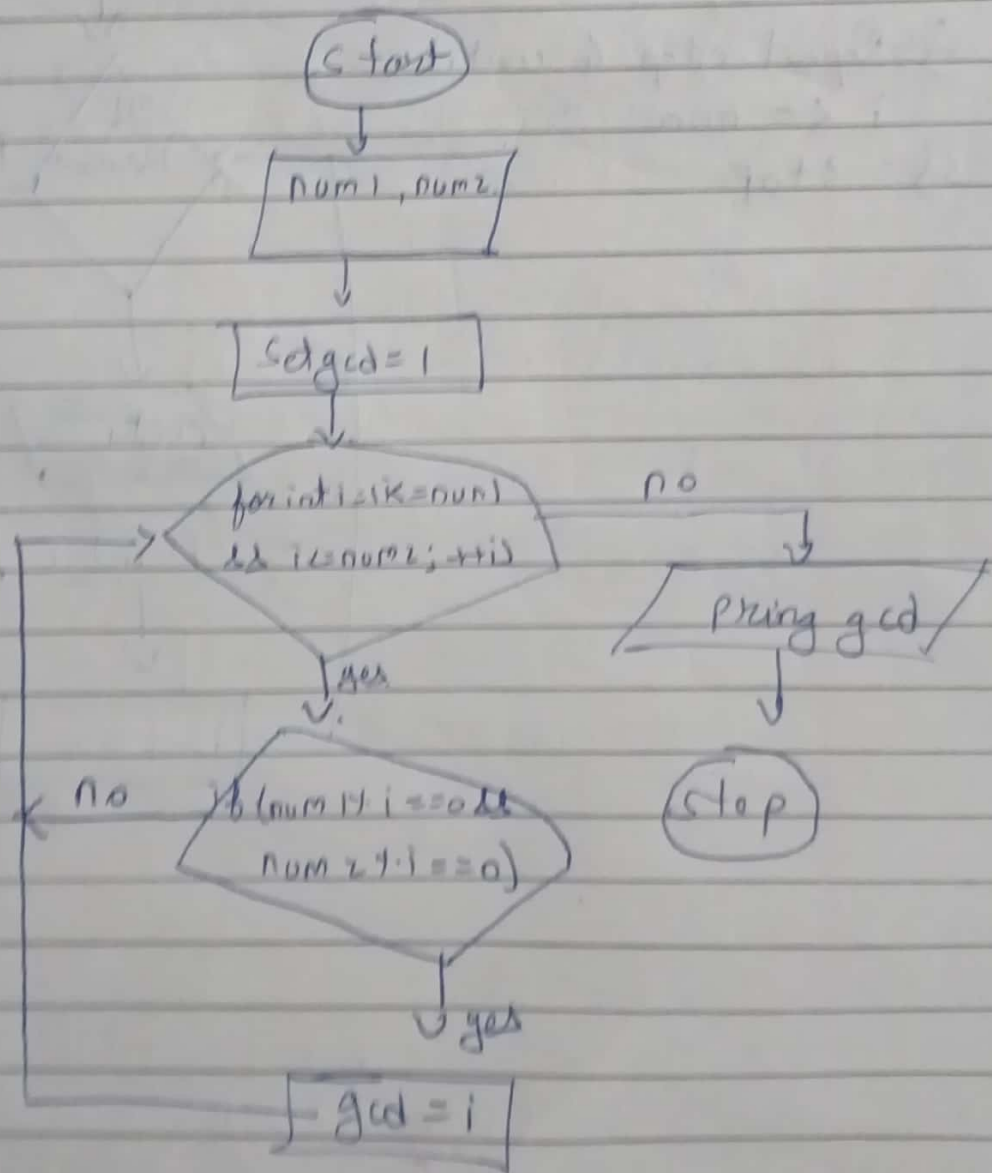 start
num1, num2
Set gcd = 1
for int i=1 i<=num1
&& i<=num2; ++i)
no
pring gcd
yes
no
if (num1 % i ==0 &&
num2 % i ==0)
stop
yes
gcd = i